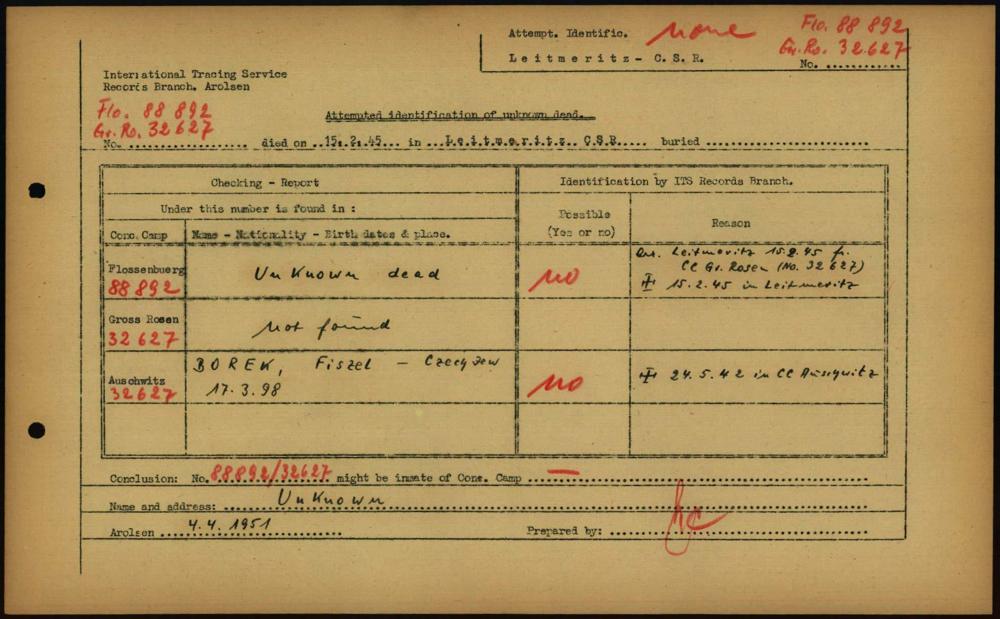 Attempt. Identific. none
Leitmeritz - C. S. R.
Flo. 88 892
Gr. Ro. 32.627
No. ............
International Tracing Service
Records Branch, Arolsen
Flo. 88 892
Gr. Ro. 32 627
Attempted identification of unknown dead.
No. .................. died on ...15.2.45... in ...Leitmeritz. C.S.R..... buried ......................
Checking - Report
Identification by ITS Records Branch.
Under this number is found in :
Possible
(Yes or no)
Reason
Conc. Camp
Name - Nationality - Birth dates & place.
Flossenbuerg
88 892
Unknown dead
no
Leitmeritz 15.2.45 fr.
CC Gr. Rosen (No. 32 627)
15.2.45 in Leitmeritz
Gross Rosen
32 627
not found
Auschwitz
32627
BOREK, Fiszel - Czech Jew
17.3.98
no
24.5.42 in CC Auschwitz
Conclusion: No. 88892/32627 might be inmate of Conc. Camp —
Name and address: Unknown
Arolsen 4.4.1951
Prepared by: